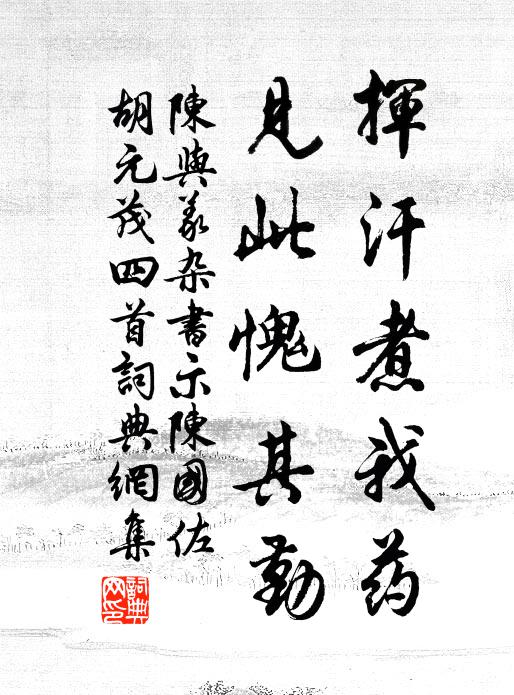 揮汗煮我药
見此愧其勤
陳與義杂書示陳國佐
胡元茂四首詞典網集
詞典网印